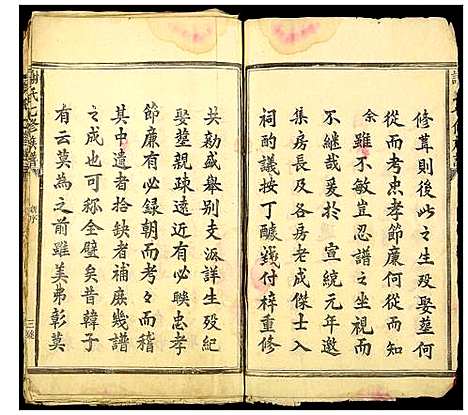 修葺則後此之生殁娶葬何
從而考忠孝節廉何從而
余
雖不敏豈忍譜之坐視而
不継哉爰於宣統元年邀
集房長及各房老成傑士入
祠酌議按丁醵錢付梓重修
共勷盛舉别支派詳生殁紀
娶塟親疎遠近有必聯忠孝
節廉有必録朝而考々而稽
其中遺者拾鈌者補庻幾譜
之成也可称全璧矣昔韓子
有云莫為之前雖美弗彰莫
謝氏七修族譜
三